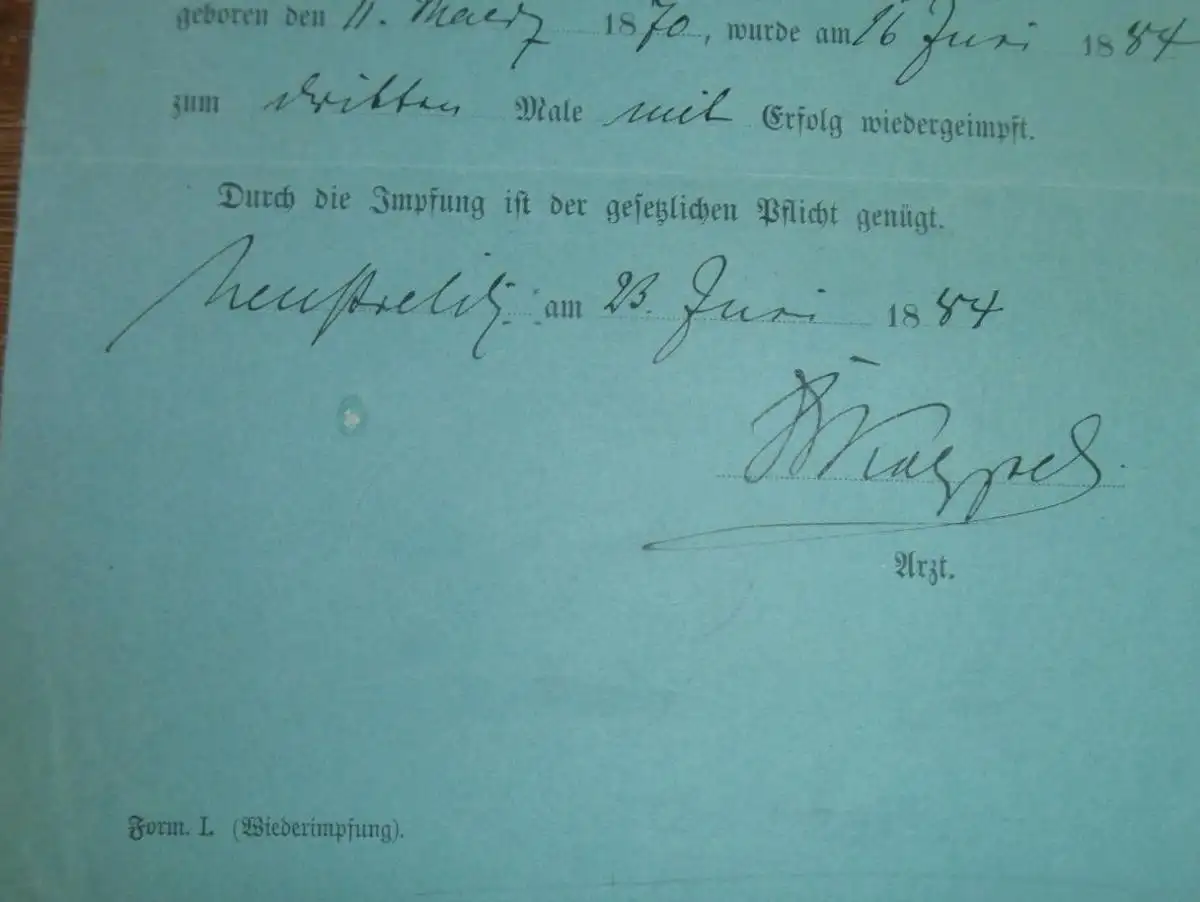 geboren den 11. Maerz 1870, wurde am 16 Juni 1884
zum dritten Male mit Erfolg wiedergeimpft.
Durch die Impfung ist der gesetzlichen Pflicht genügt.
Neustrelitz am 23. Juni 1884
Arzt.
Form. I. (Wiederimpfung).